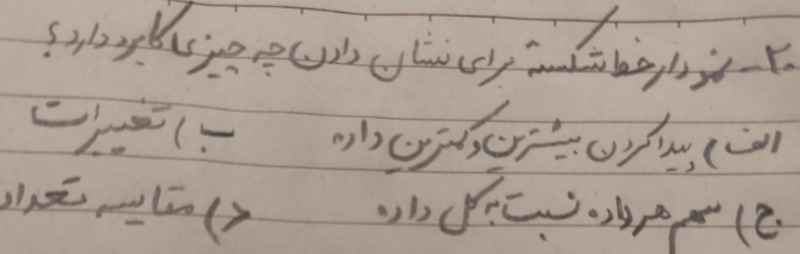 ۲- نمودار خط شکسته برای نشان دادن چه چیزی کاربرد دارد؟
الف) پیدا کردن بیشترین و کمترین داده ب) تغییرات
ج) سهم هر داده نسبت به کل داده د) مقایسه تعداد